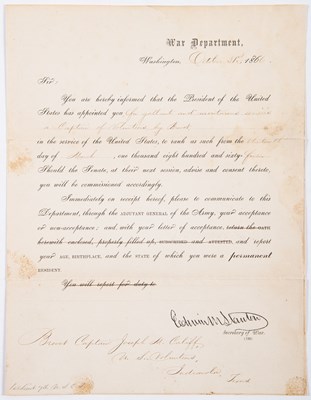 War Department,
Washington, October 31st, 186
Sir:
You are hereby informed that the President of the United
States has appointed you for gallant and meritorious service
a Captain of Volunteers by Brevet
in the service of the United States, to rank as such from the
day of March, one thousand eight hundred and sixty
Should the Senate, at their next session, advise and consent thereto,
you will be commissioned accordingly.
Immediately on receipt hereof, please to communicate to this
Department, through the ADJUTANT GENERAL of the Army, your acceptance
or non-acceptance; and with your letter of acceptance, return the oath
herewith enclosed, properly filled up, SUBSCRIBED and ATTESTED, and report
your AGE, BIRTHPLACE, and the STATE of which you were a PERMANENT
RESIDENT.
You will report for duty to
Edwin M Stanton
Secretary of War.
Brevet Captain Joseph H.
U.S. Volunteers,